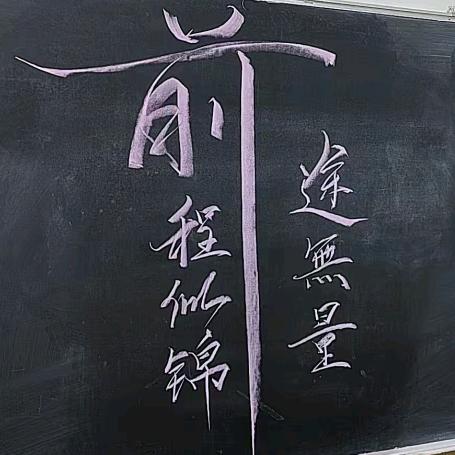 前
程似锦
途無量